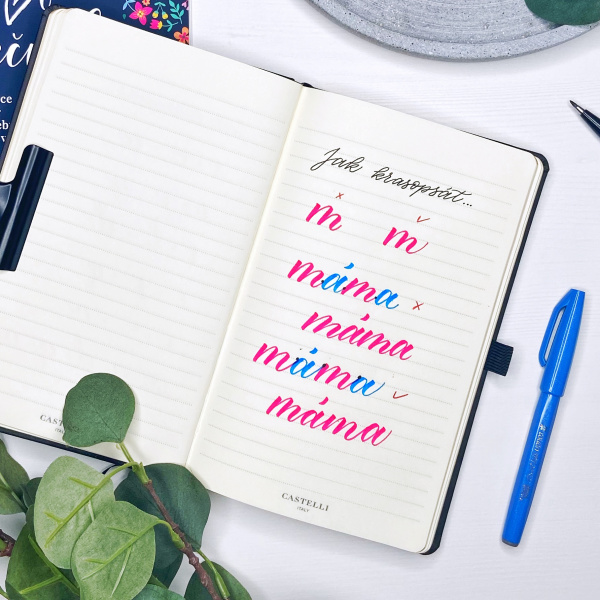 Jak krasopsát...
m x m ✓
máma x
máma
máma ✓
máma
CASTELLI
ITALY